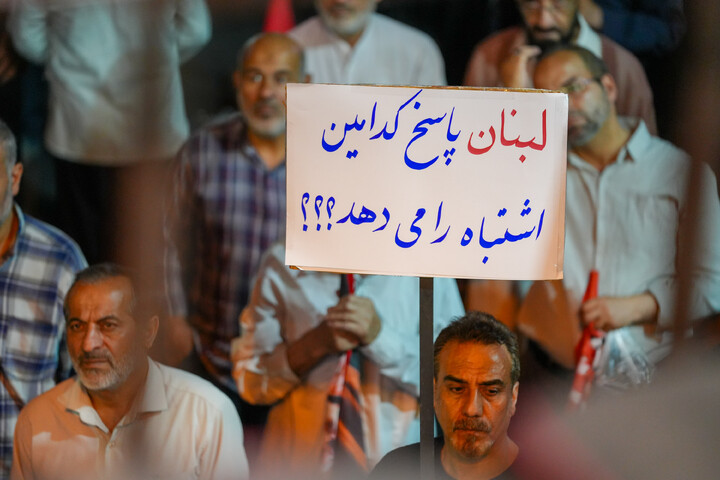 لبنان پاسخ کدامین
اشتباه را می دهد؟؟؟